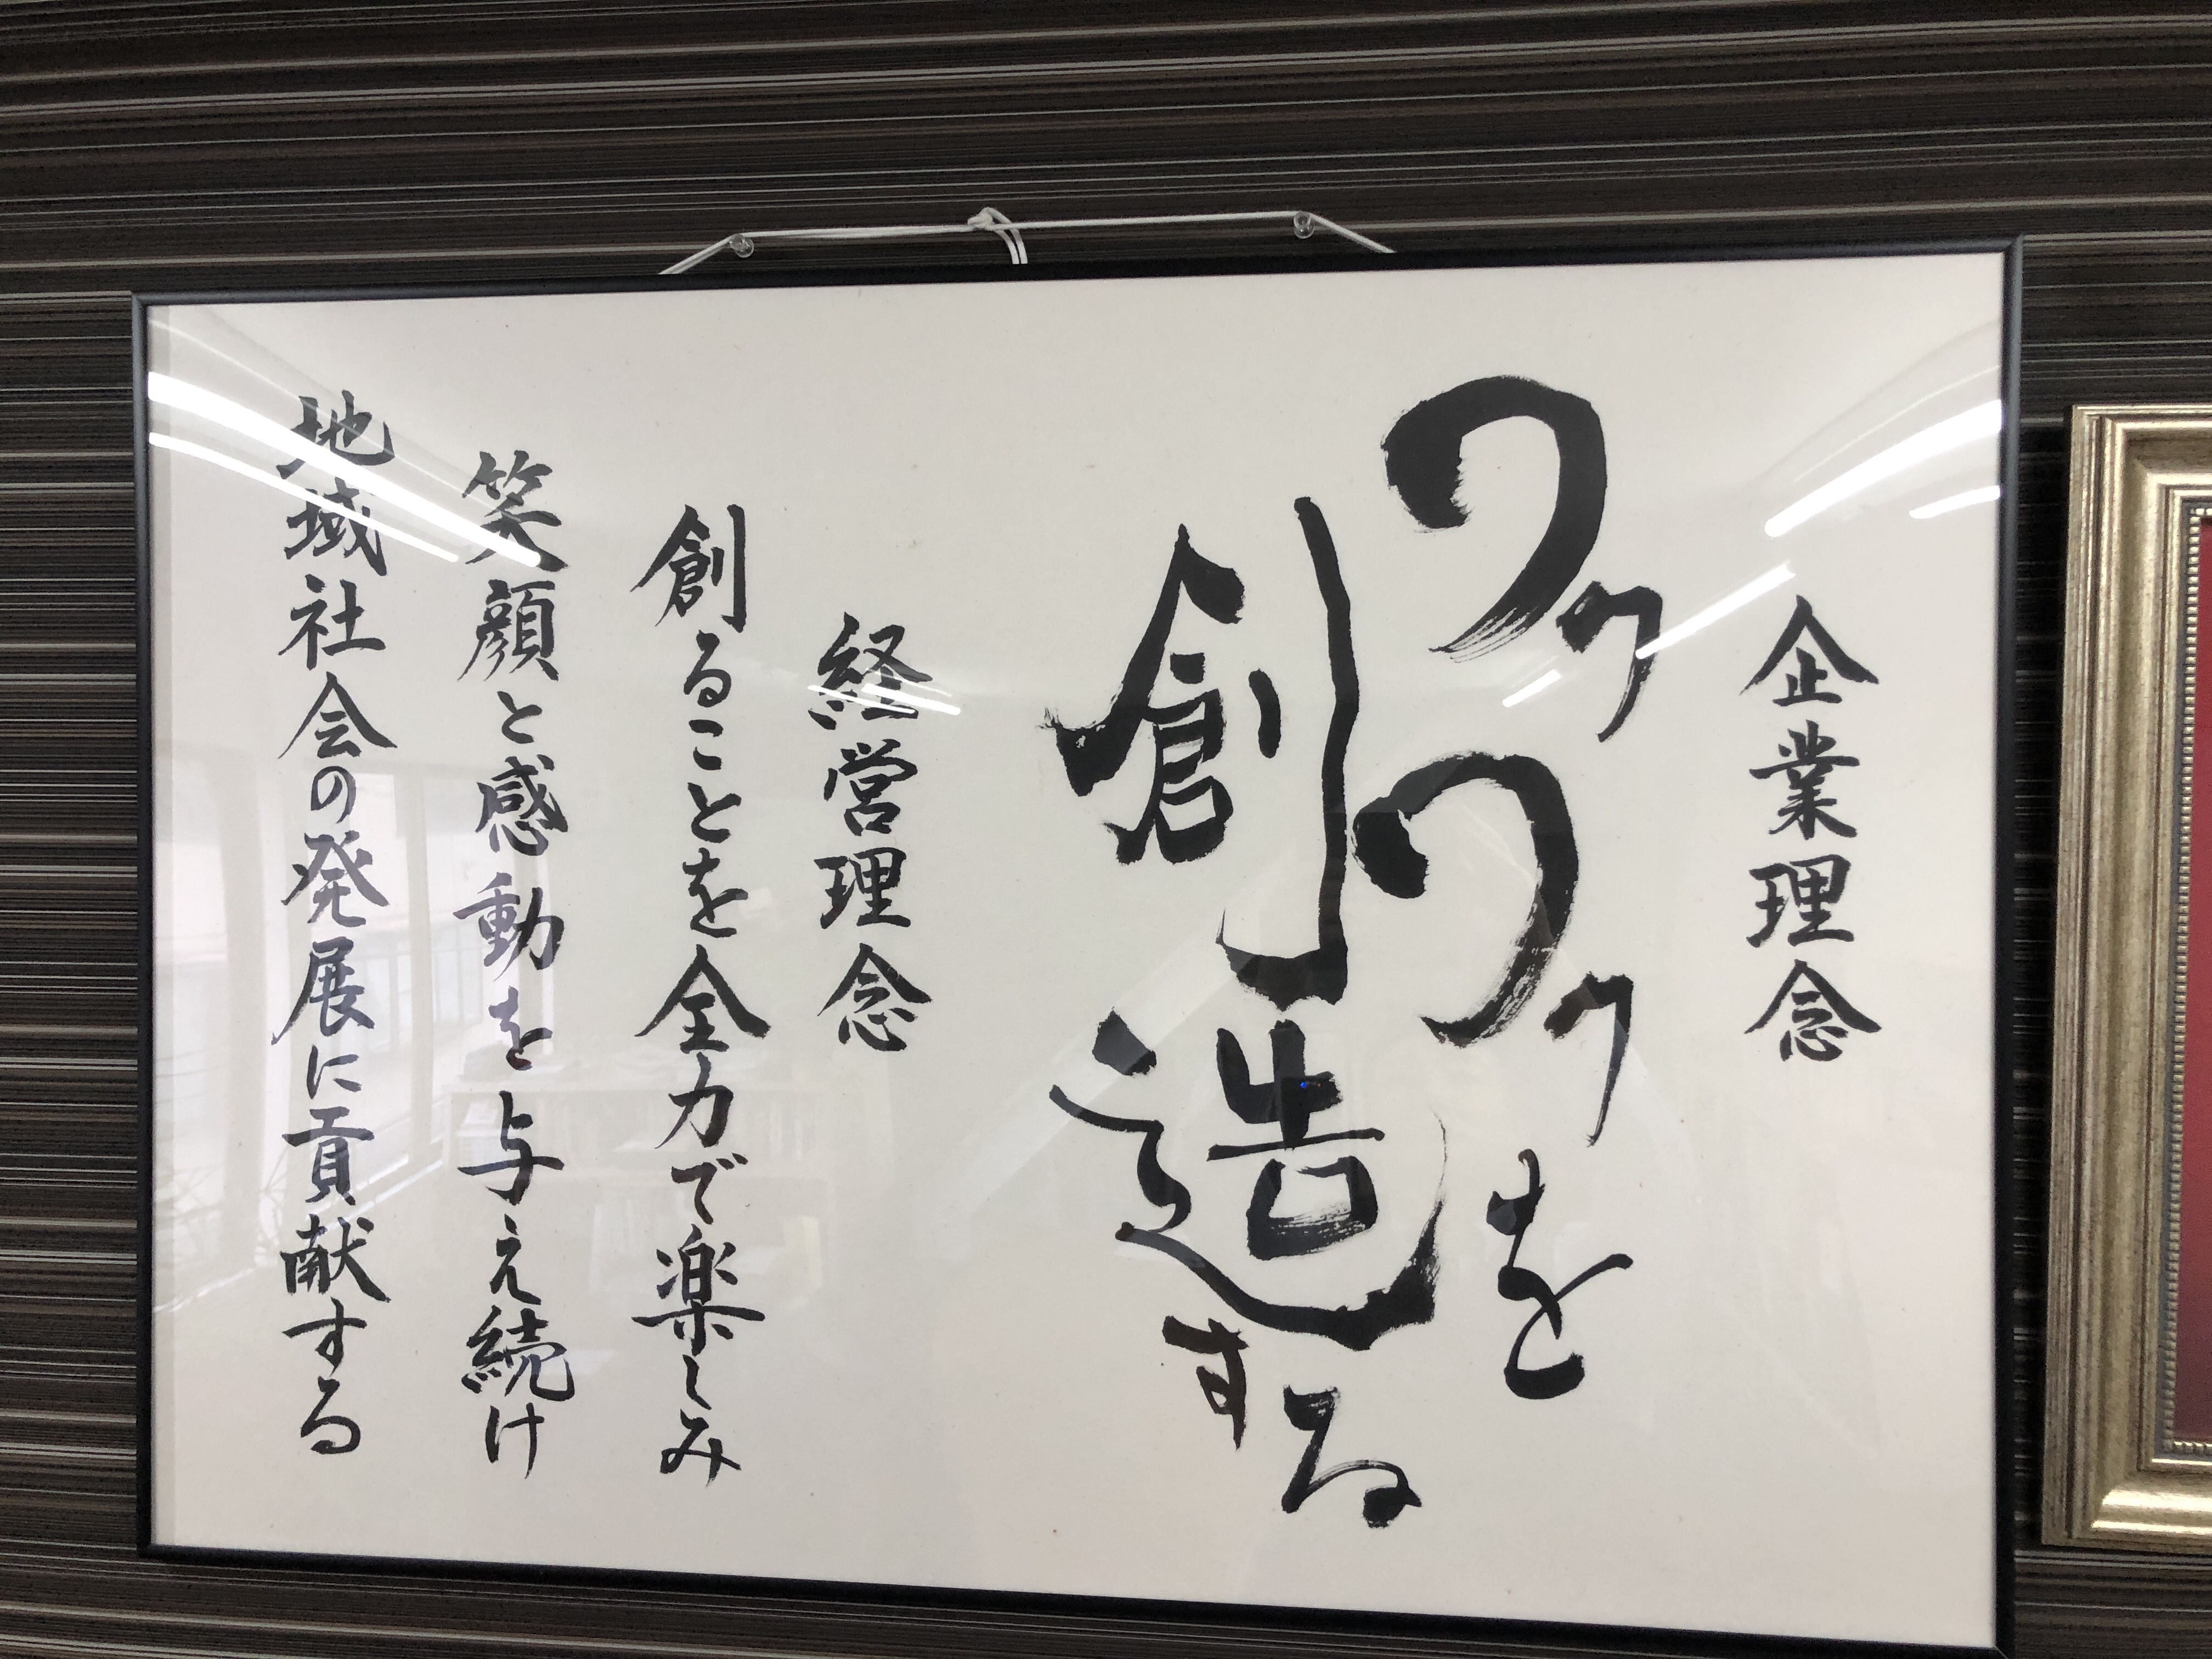 企業理念
ワクワクを
創造する
経営理念
創ることを全力で楽しみ
笑顔と感動を与え続け
地域社会の発展に貢献する